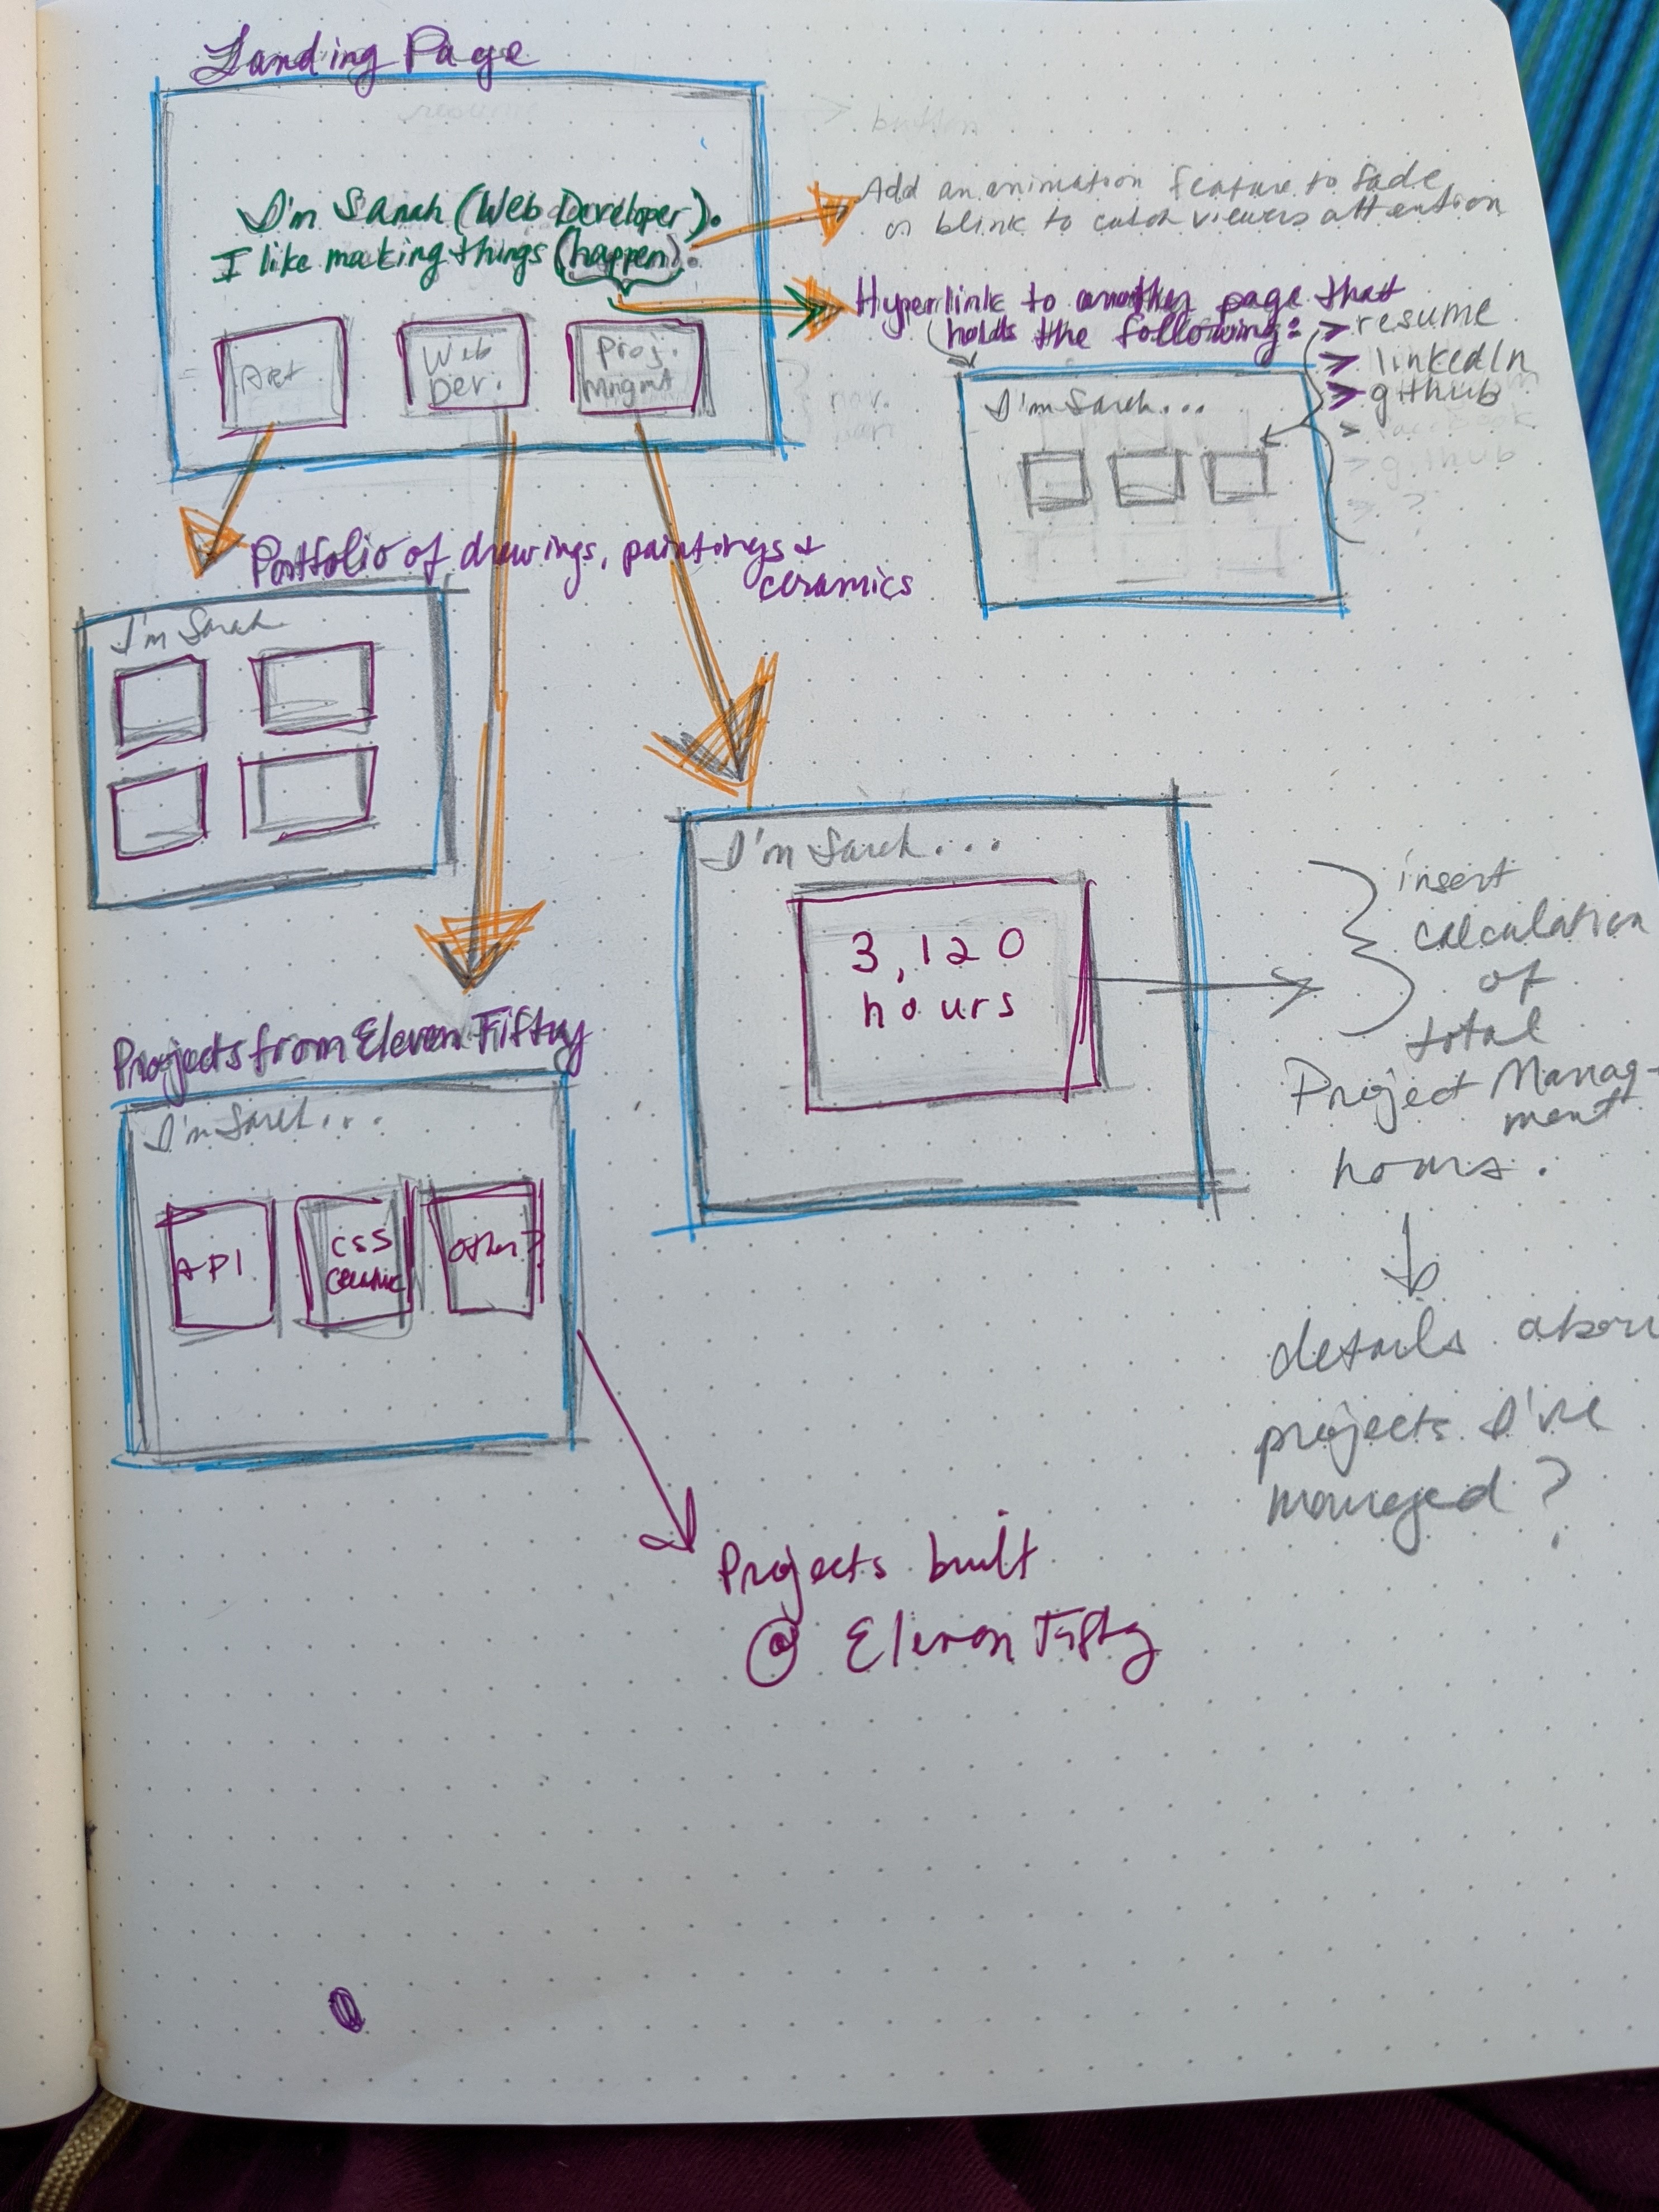 Landing Page
resume
button
I'm Sarah (Web Developer).
I like making things (happen).
Add an animation feature to fade
or blink to catch viewers attention
Hyperlink to another page that
holds the following:
> resume
> linkedIn
> github
> facebook
> github
> ?
Art
Web
Dev.
Proj.
Mngmt
nav.
I'm Sarah...
Portfolio of drawings, paintings +
ceramics
I'm Sarah
I'm Sarah...
3,120
hours
insert
calculation
of
total
Project Manag-
ment
hours.
details abou
projects I've
managed?
Projects from Eleven Fifty
I'm Sarah...
API
CSS
Other?
Projects built
@ Eleven Fifty